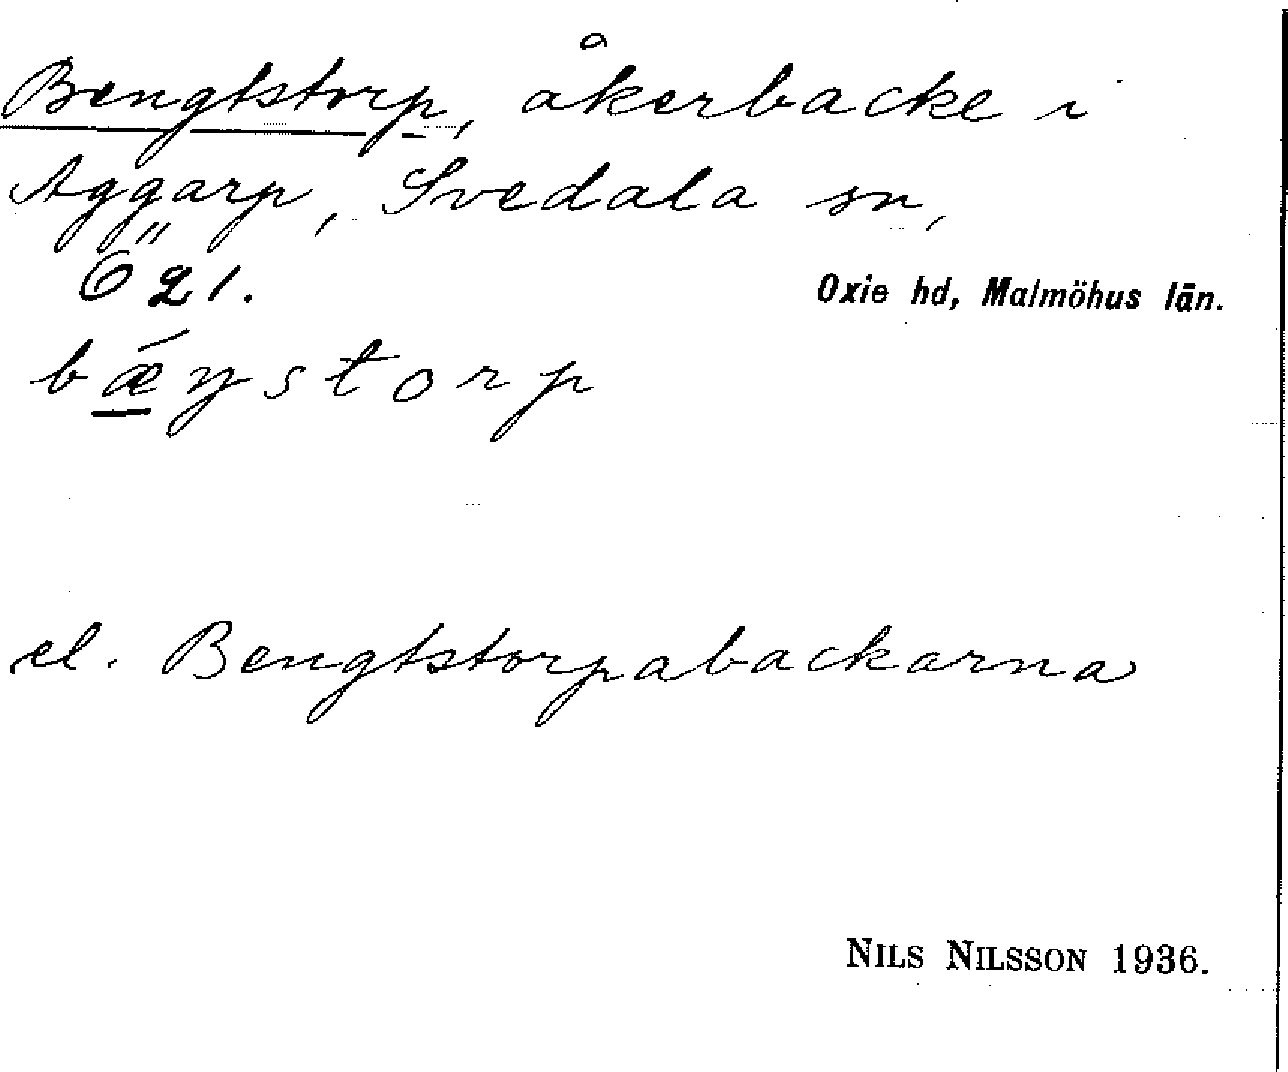 Bengtstorp, åkerbacke i
Aggarp, Svedala sn,
Ö 21. Oxie hd, Malmöhus län.
bǽŋstorp
el. Bengtstorpabackarna
NILS NILSSON 1936.